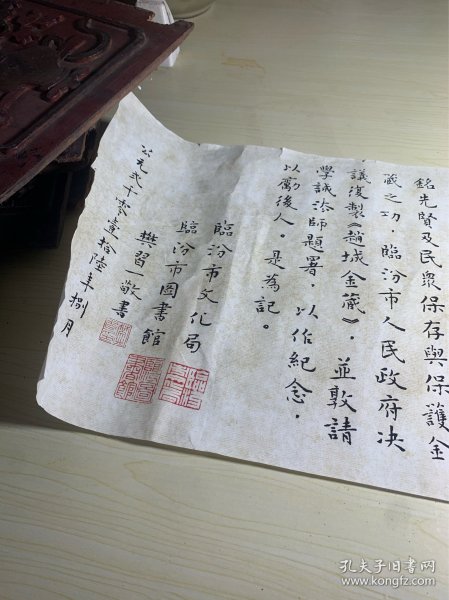 銘先賢及民衆保存與保護金
藏之功，臨汾市人民政府决
議復製《趙城金藏》，並敦請
學誠法師題署，以作紀念，
以勵後人。是為記。
臨汾市文化局
臨汾市圖書館
樊習一敬書
公元貳千零壹拾陸年捌月
孔夫子旧书网
www.kongfz.com